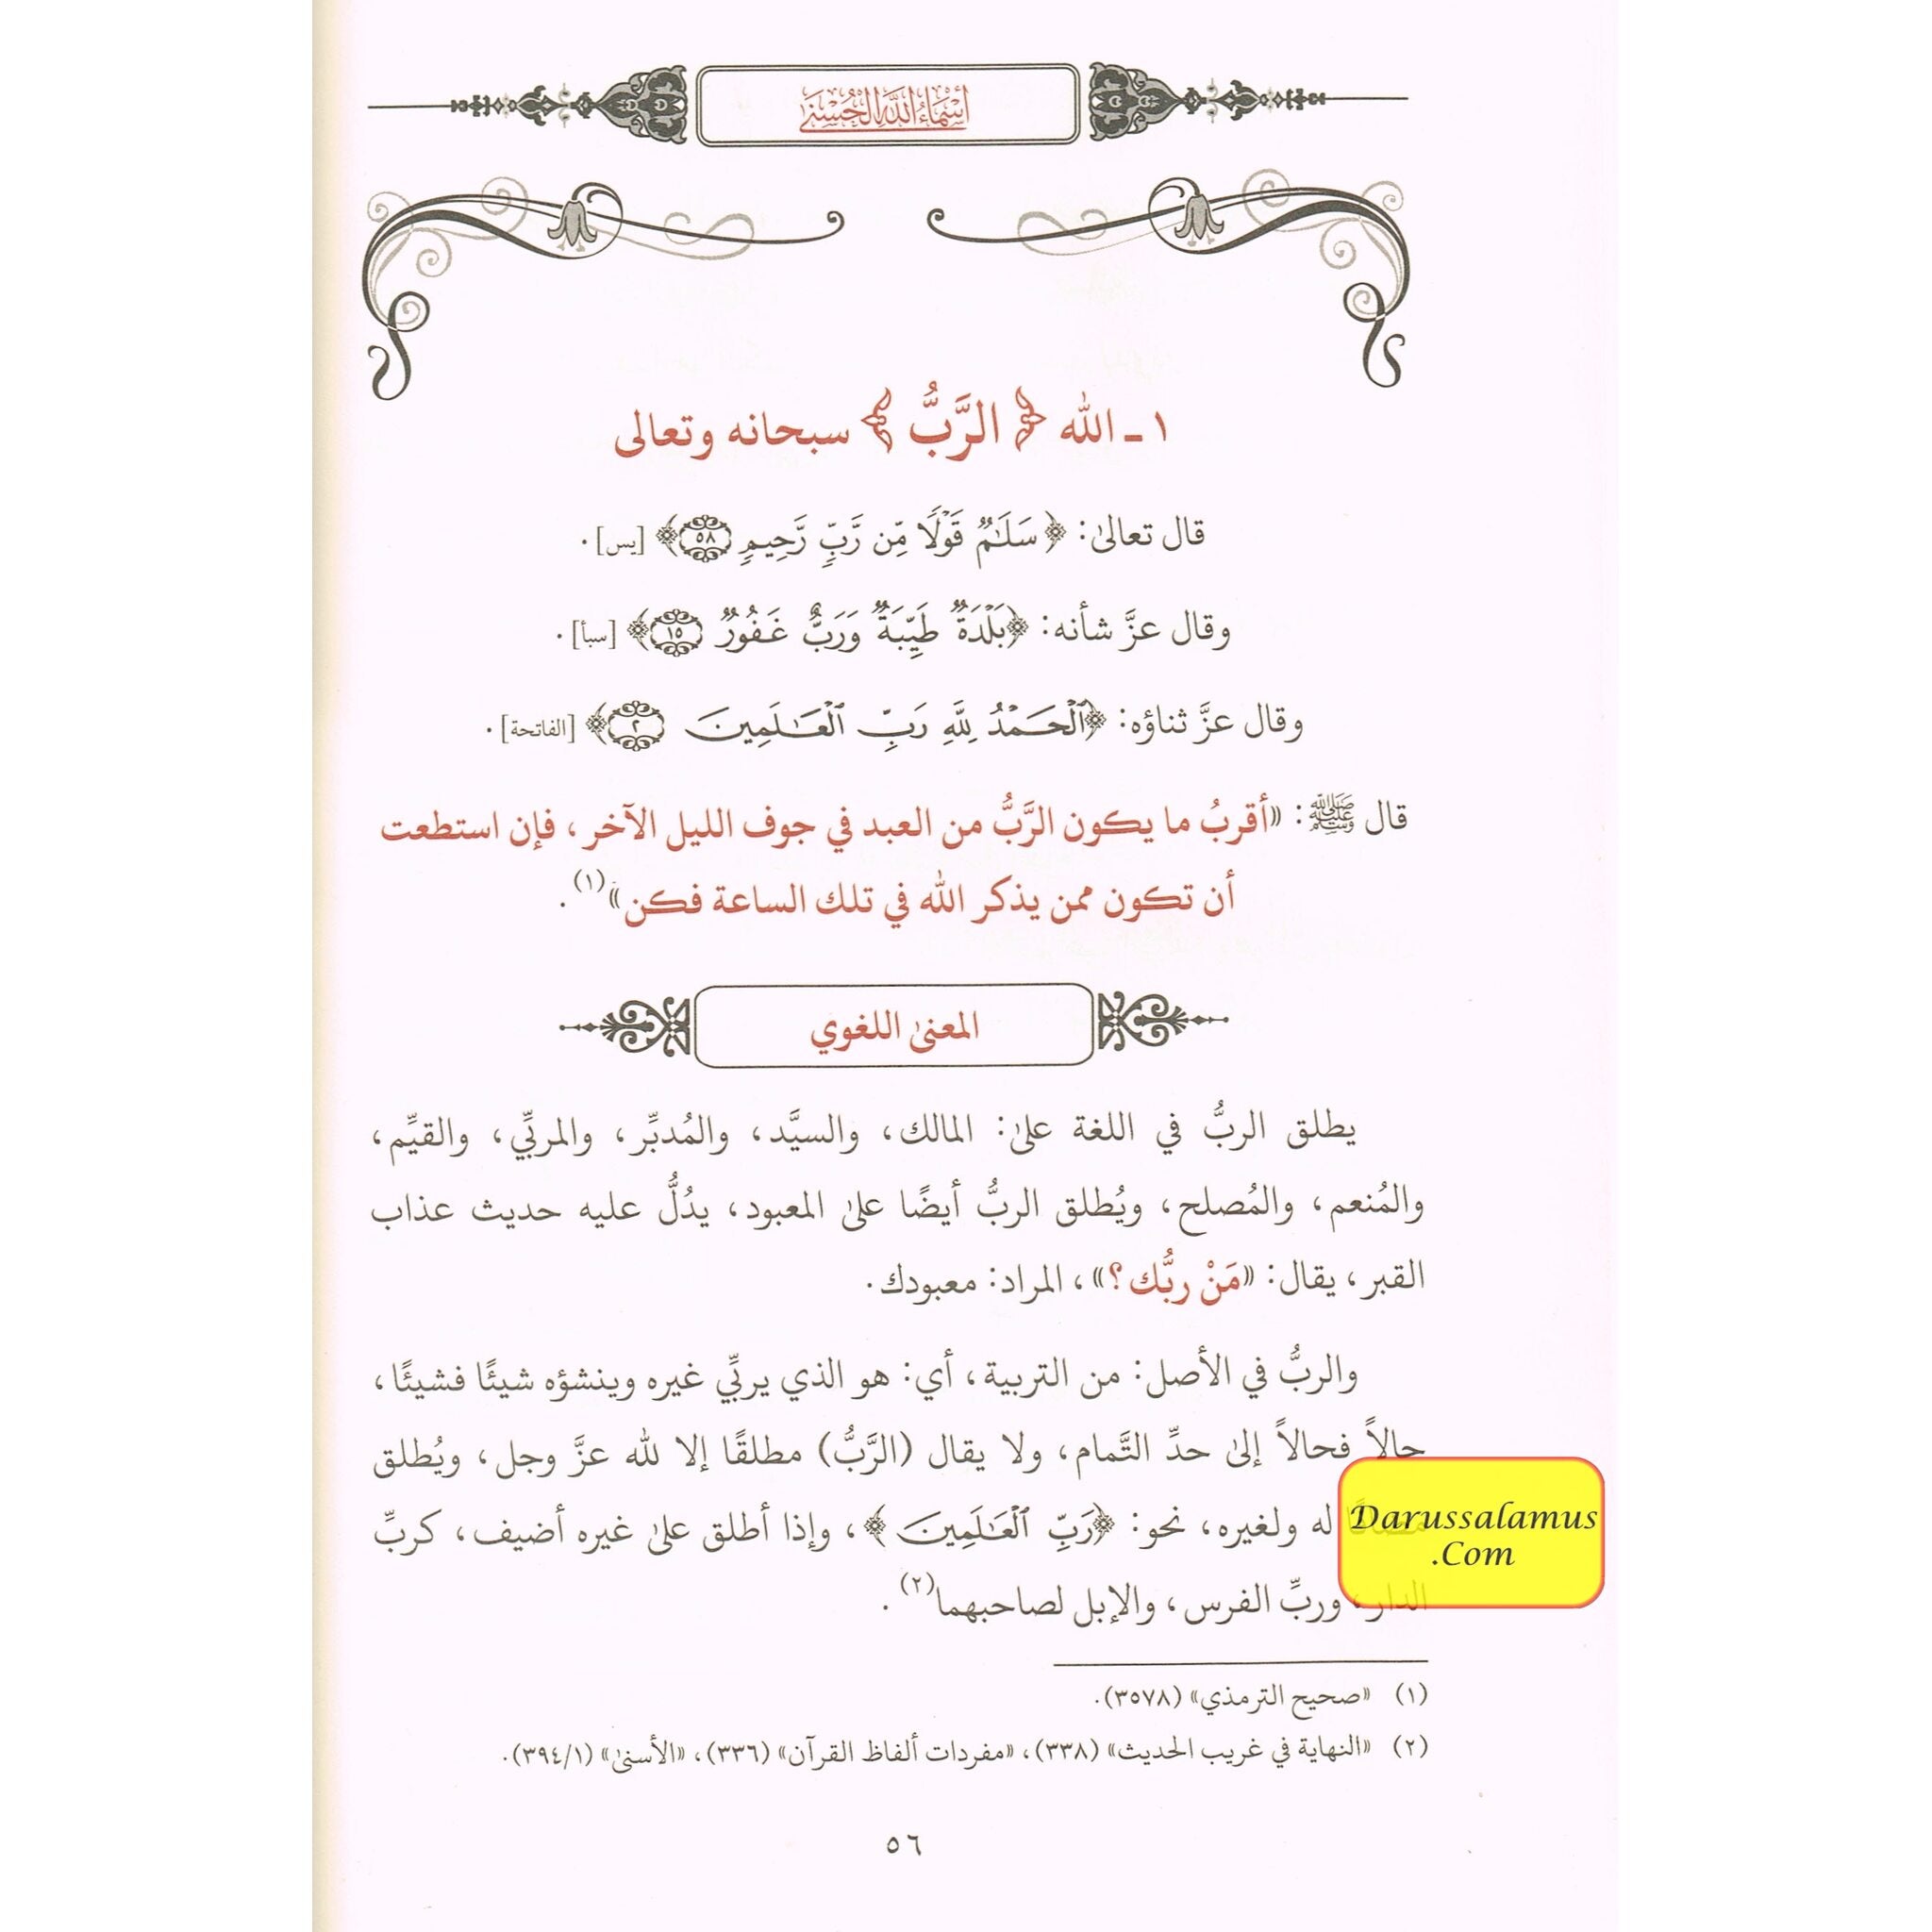 أسماء الله الحسنى
١ ـ الله ﴿ الرَّبُّ ﴾ سبحانه وتعالى
قال تعالىٰ: ﴿ سَلَٰمٌ قَوْلًا مِّن رَّبٍّ رَّحِيمٍ ٥٨﴾ [يس] .
وقال عزَّ شأنه: ﴿بَلْدَةٌ طَيِّبَةٌ وَرَبٌّ غَفُورٌ ١٥﴾ [سبأ] .
وقال عزَّ ثناؤه: ﴿ٱلْحَمْدُ لِلَّهِ رَبِّ ٱلْعَٰلَمِينَ ٢﴾ [الفاتحة] .
قال ﷺ: «أقربُ ما يكون الرَّبُّ من العبد في جوف الليل الآخر، فإن استطعت
أن تكون ممن يذكر الله في تلك الساعة فكن»(١) .
المعنىٰ اللغوي
يطلق الربُّ في اللغة علىٰ: المالك، والسيَّد، والمُدبِّر، والمربِّي، والقيِّم،
والمُنعم، والمُصلح، ويُطلق الربُّ أيضًا علىٰ المعبود، يدُلُّ عليه حديث عذاب
القبر، يقال: «مَنْ ربُّك؟»، المراد: معبودك.
والربُّ في الأصل: من التربية، أي: هو الذي يربِّي غيره وينشؤه شيئًا فشيئًا،
حالاً فحالاً إلىٰ حدِّ التَّمام، ولا يقال (الرَّبُّ) مطلقًا إلا لله عزَّ وجل، ويُطلق
له ولغيره، نحو: ﴿رَبِّ ٱلْعَٰلَمِينَ ﴾، وإذا أطلق علىٰ غيره أضيف، كربِّ
الدار، وربِّ الفرس، والإبل لصاحبهما(٢) .
Darussalamus
.Com
(١) «صحيح الترمذي» (٣٥٧٨).
(٢) «النهاية في غريب الحديث» (٣٣٨)، «مفردات ألفاظ القرآن» (٣٣٦)، «الأسنىٰ» (٣٩٤/١).
٥٦